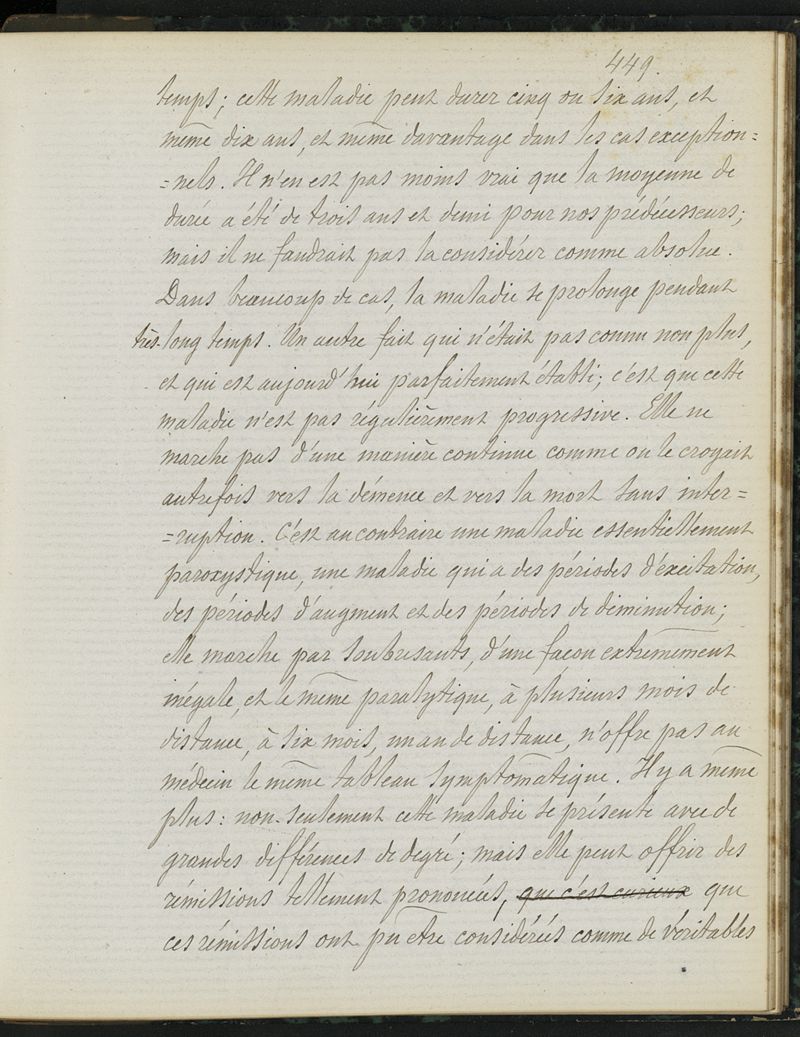 449.
temps; cette maladie peut durer cinq ou six ans, et
même dix ans, et même davantage dans les cas exception=
=nels. Il n'en est pas moins vrai que la moyenne de
durée a été de trois ans et demi pour nos prédécesseurs;
mais il ne faudrait pas la considérer comme absolue.
Dans beaucoup de cas, la maladie se prolonge pendant
très long temps. Un autre fait qui n'était pas connu non plus,
et qui est aujourd'hui parfaitement établi; c'est que cette
maladie n'est pas régulièrement progressive. Elle ne
marche pas d'une manière continue comme on le croyait
autrefois vers la démence et vers la mort sans inter=
=ruption. C'est au contraire une maladie essentiellement
paroxystique, une maladie qui a des périodes d'éxcitation,
des périodes d'augment et des périodes de diminution;
elle marche par soubresauts, d'une façon extrêmement
inégale, et le même paralytique, à plusieurs mois de
distance, à six mois, un an de distance, n'offre pas au
médecin le même tableau symptômatique. Il y a même
plus: non-seulement cette maladie se présente avec de
grandes différences de degré; mais elle peut offrir des
rémissions tellement prononcées, que c'est curieux que
ces rémissions ont pu être considérées comme de véritables